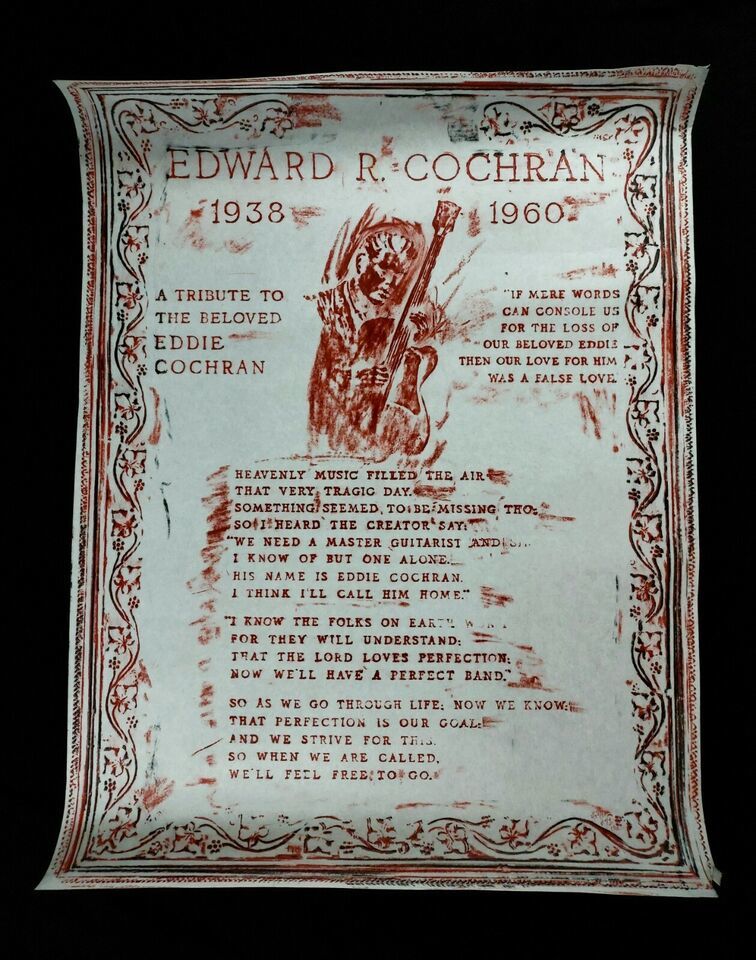 EDWARD R. COCHRAN
1938 1960
A TRIBUTE TO
THE BELOVED
EDDIE
COCHRAN
"IF MERE WORDS
CAN CONSOLE US
FOR THE LOSS OF
OUR BELOVED EDDIE
THEN OUR LOVE FOR HIM
WAS A FALSE LOVE."
HEAVENLY MUSIC FILLED THE AIR
THAT VERY TRAGIC DAY.
SOMETHING SEEMED TO BE MISSING THO;
SO I HEARD THE CREATOR SAY:
"WE NEED A MASTER GUITARIST AND
I KNOW OF BUT ONE ALONE.
HIS NAME IS EDDIE COCHRAN.
I THINK I'LL CALL HIM HOME."
"I KNOW THE FOLKS ON EARTH
FOR THEY WILL UNDERSTAND;
THAT THE LORD LOVES PERFECTION;
NOW WE'LL HAVE A PERFECT BAND."
SO AS WE GO THROUGH LIFE; NOW WE KNOW;
THAT PERFECTION IS OUR GOAL;
AND WE STRIVE FOR THIS.
SO WHEN WE ARE CALLED,
WE'LL FEEL FREE TO GO.